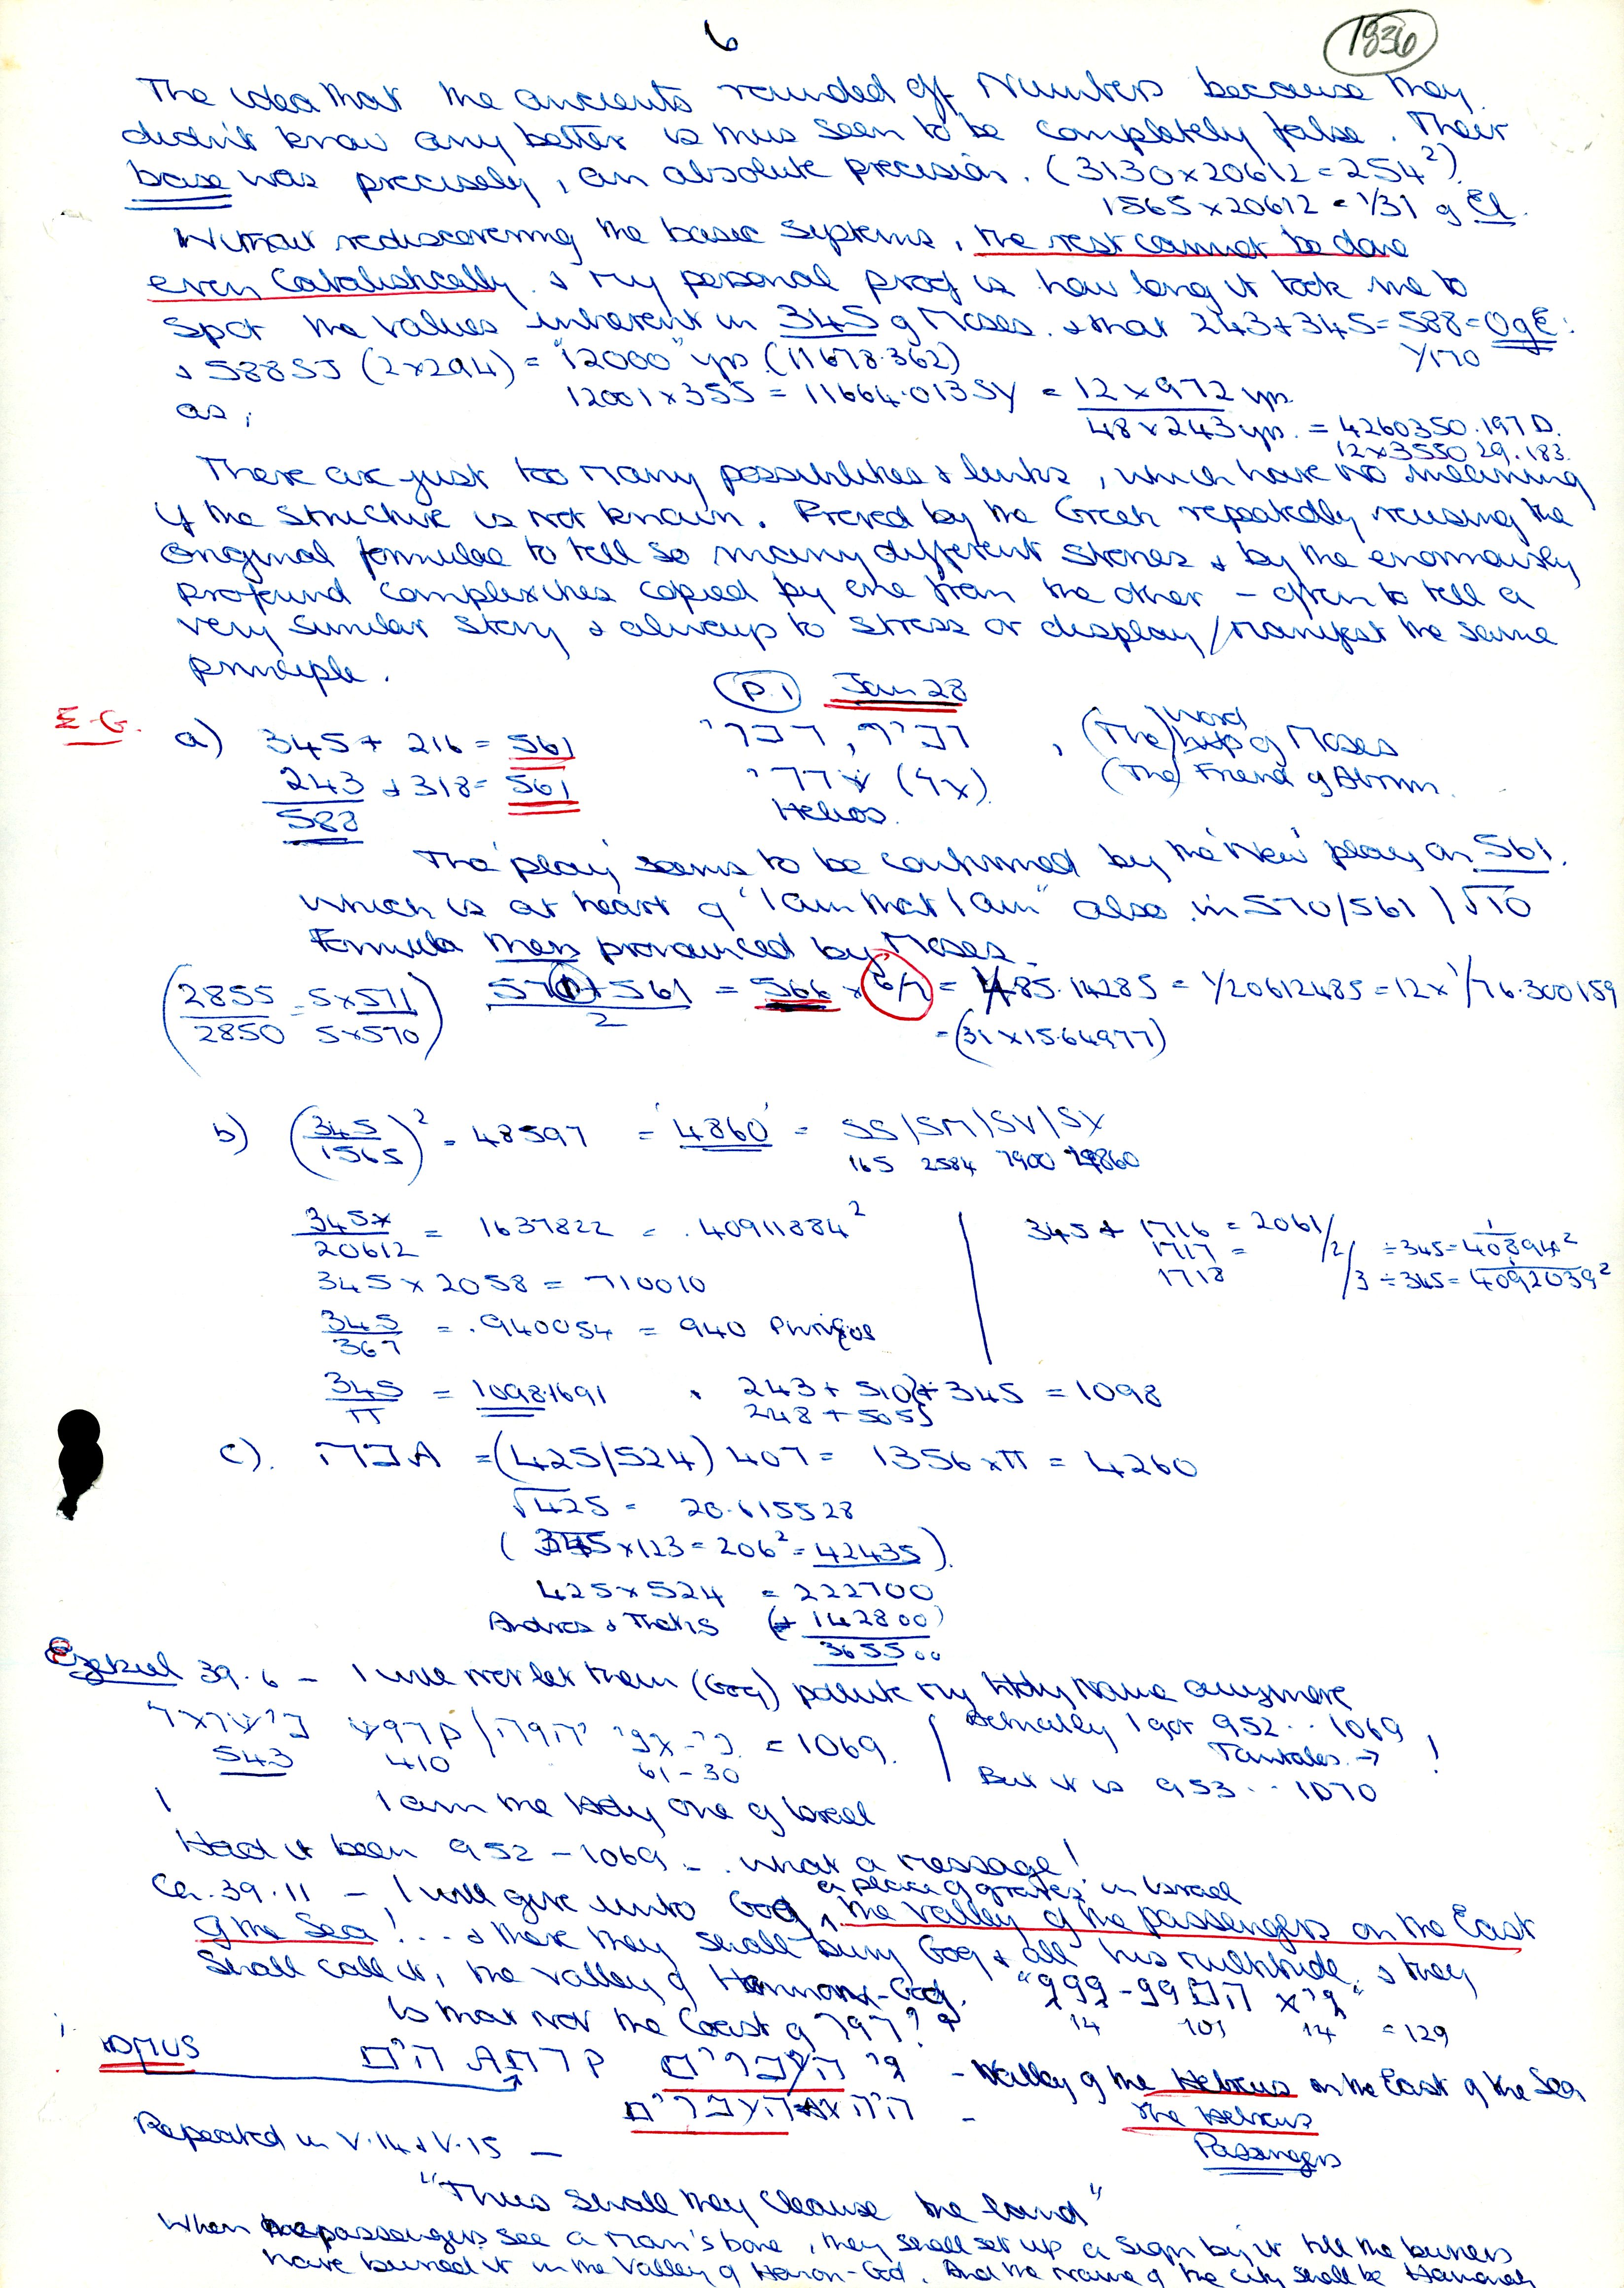 6
1836
The idea that the ancients rounded off Numbers because they
didn't know any better is thus seen to be completely false. Their
base was precisely, an absolute precision. (3130 x 20612 = 254²)
1565 x 20612 = 1/31 g El.
Without rediscovering the base systems, the rest cannot be done
even Cabalistically. & My personal proof is how long it took me to
spot the values inherent in 345 of Moses. & that 243 + 345 = 588 = OgE:
1/170
& 588SJ (2x294) = "12000" yps (11678.362)
as; 12001 x 355 = 11664.013SY = 12 x 972 yps
48 x 243 yps. = 4260350.197 D.
12 x 355029.183
There are just too many possibilities & links, which have no meaning
if the structure is not known. Proved by the Greek repeatedly reusing the
original formulae to tell so many different stories & by the enormously
profound complexities copied by one from the other – often to tell a
very similar story & always to stress or display/manifest the same
principle.
(P.1) Jan 28
E.G. a) 345 + 216 = 561 דביר, דברי, (The) Word of Moses
243 + 318 = 561 (The) Friend of Abram.
588 Helios.
The 'play' seems to be confirmed by the 'New' play on 561.
which is at heart of "I am that I am" also in 570/561 / √10
Formula then pronounced by Moses.
(2855/2850 = 5x571/5x570) 571 + 561/2 = 566 x 6/7 = 1/485.14285 = 1/20612485 = 12 x 1/76.300159
= (31 x 15.64977)
b) (345/1565)² = 48597 = '4860' = SS/SM/SV/SY
165 2584 7900
345x/20612 = 1637822 = .40911884²
345 + 1716 = 2061/
1717 = /2/ ÷ 345 = 1/40894²
1718 /3 ÷ 345 = 1/4092039²
345 x 2058 = 710010
345/367 = .940054 = 940 Phrixos
345/π = 1098.1691 . 243 + 510 + 345 = 1098
248 + 505
c). = (425/524) 407 = 1356 x π = 4260
√425 = 20.615528
(345 x 123 = 206² = 42435).
425 x 524 = 222700
Andros & Thetis (+ 142800)
365500
Ezekiel 39.6 – I will not let them (Gog) pollute my Holy Name anymore
בישראל קדוש יהוה כי-אני = 1069.
543 410 61-30
Actually I got 952 .. 1069
Tantalos → !
But it is 953 .. 1070
I am the Holy One of Israel
Had it been 952 – 1069 – . what a message!
Ch. 39.11 – I will give unto Gog a place of graves in Israel
, the valley of the passengers on the East
of the Sea! ... & there they shall bury Gog & all his multitude, & they
shall call it, the valley of Hamon-Gog.
14 101 14 = 129
Is that not the Coast of ?
IDMUS גי העברים קדמת הים – Valley of the Hebrews on the East of the Sea
– the Hebrews
Passengers
Repeated in V.14 & V.15 –
"Thus shall they cleanse the land"
When the passengers see a man's bone, they shall set up a sign by it till the buriers
have buried it in the Valley of Hamon-God. And the name of the city shall be Hamonah